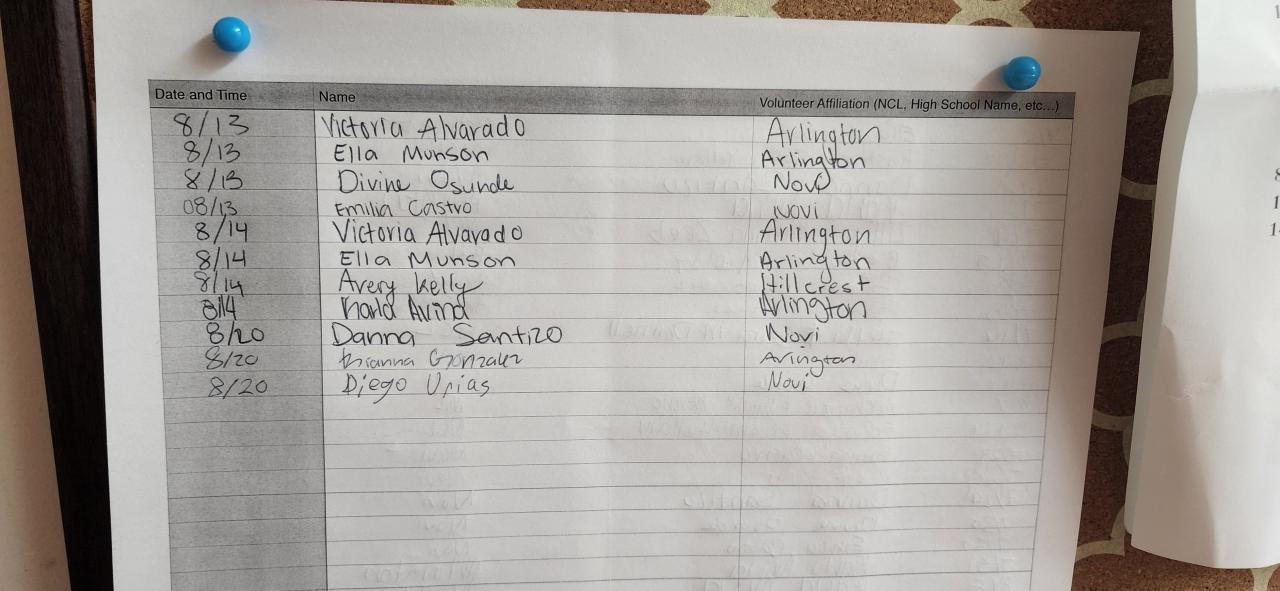 Date and Time Name Volunteer Affiliation (NCL, High School Name, etc...)
8/13 Victoria Alvarado Arlington
8/13 Ella Munson Arlington
8/13 Divine Osunde Novi
08/13 Emilia Castro Novi
8/14 Victoria Alvarado Arlington
8/14 Ella Munson Arlington
8/14 Avery Kelly Hillcrest
8/14 Arlington
8/20 Danna Santizo Novi
8/20 Brianna Gonzalez Arington
8/20 Diego Urias Novi